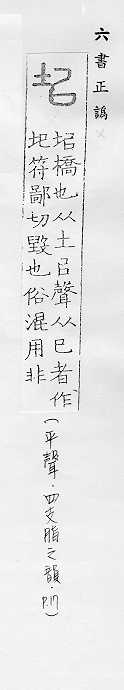 六書正譌
圯橋也从土㠯聲从巳者作
圮符鄙切毀也俗混用非
(平聲．四支脂之韻．P.17)